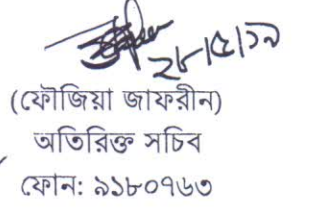 ২৮/৫/১৯
(ফৌজিয়া জাফরীন)
অতিরিক্ত সচিব
ফোন: ৯১৮০৭৬৩